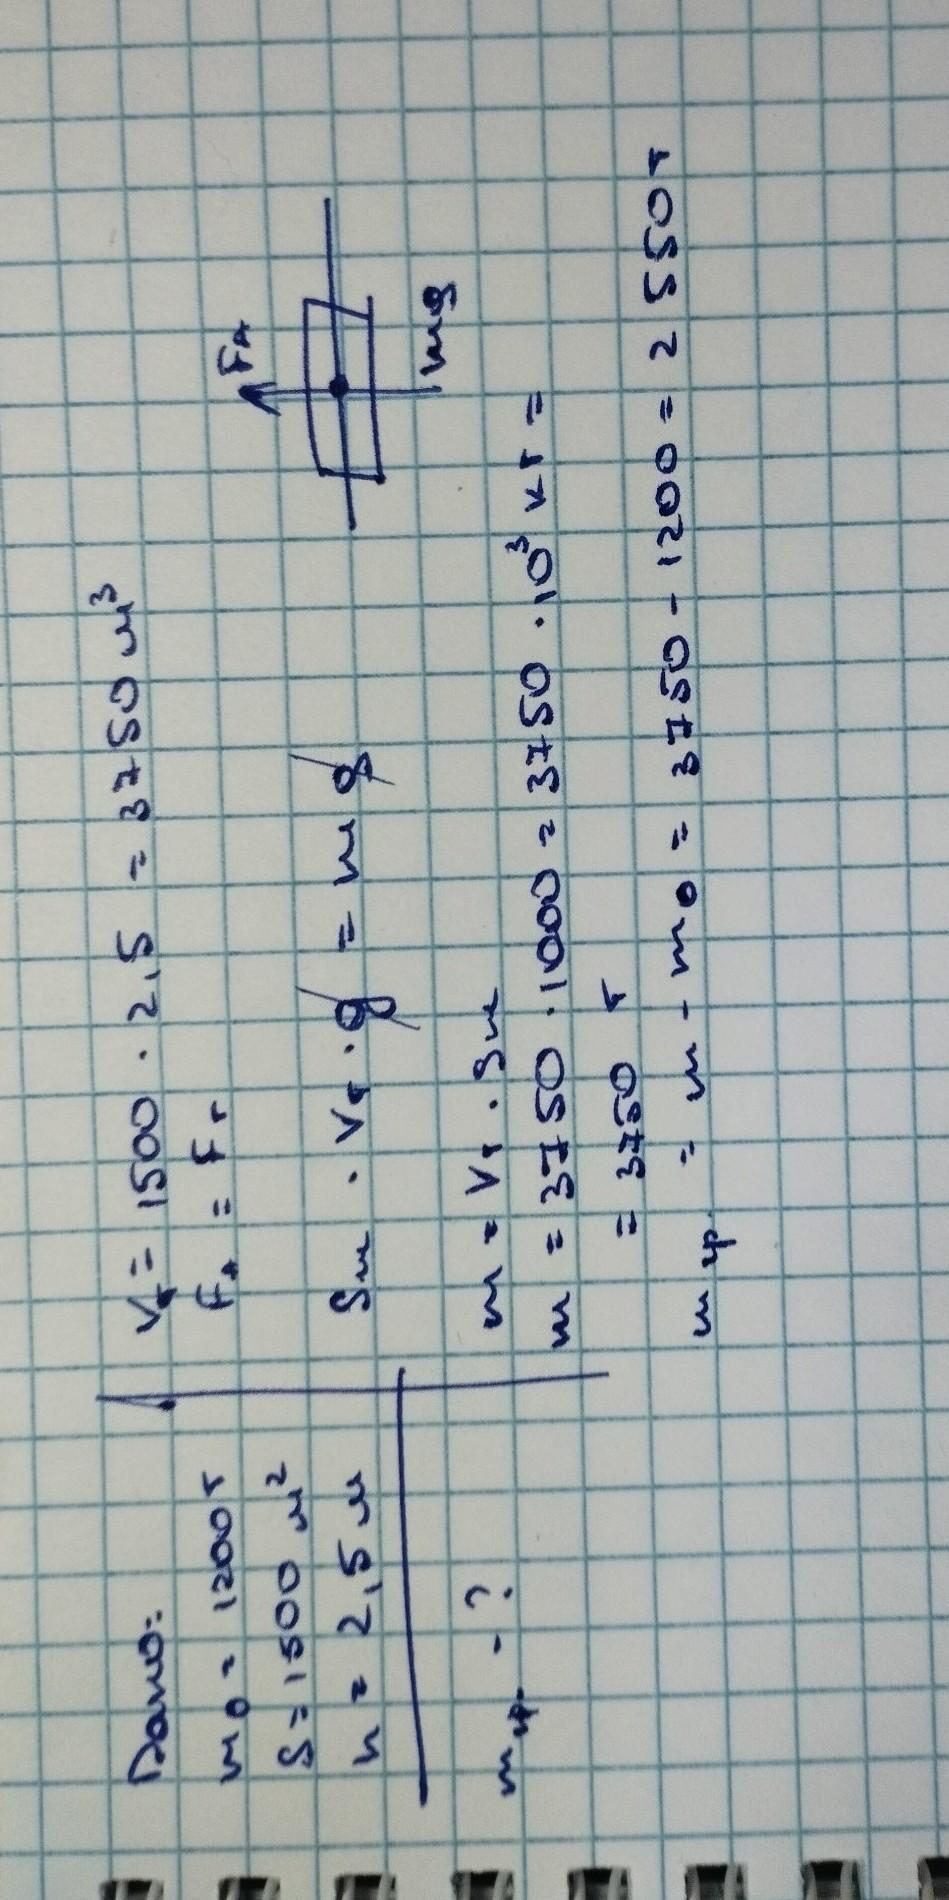 Дано:
m₀ = 1200 т
S = 1500 м²
h = 2,5 м
m гр. - ?
Vт = 1500 · 2,5 = 3750 м³
FА = Fт
ρж · Vт · g = m g
m = Vт · ρж
m = 3750 · 1000 = 3750 · 10³ кг =
= 3750 т
m гр. = m - m₀ = 3750 - 1200 = 2550 т
FА
mg